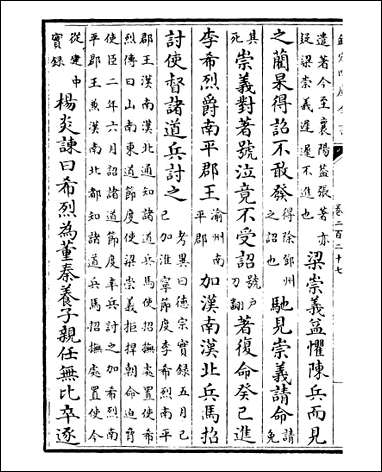 欽定四庫全書
卷二百二十七
遣著今至襄陽葢張著亦
從梁崇義遲遲不進也
梁崇義益懼陳兵而見
之藺杲得詔不敢發
得除鄧州
之詔也
馳見崇義請命
請免
其死
崇義對著號泣竟不受詔
號戶
刀翻
著復命癸巳進
李希烈爵南平郡王
渝州南
平郡
加漢南漢北兵馬招
討使督諸道兵討之
考異曰德宗實録五月己
巳加淮寧節度李希烈南平
郡王漢南漢北通知諸道兵馬使招撫處置使希
烈傳曰山南東道節度使梁崇義拒捍朝命迫脅
使臣二年六月詔諸道節度率兵討之加希烈南
平郡王兼漢南北都知諸道兵馬招撫處置使今
從建中
實録
楊炎諫曰希烈為董秦養子親任無比卒逐